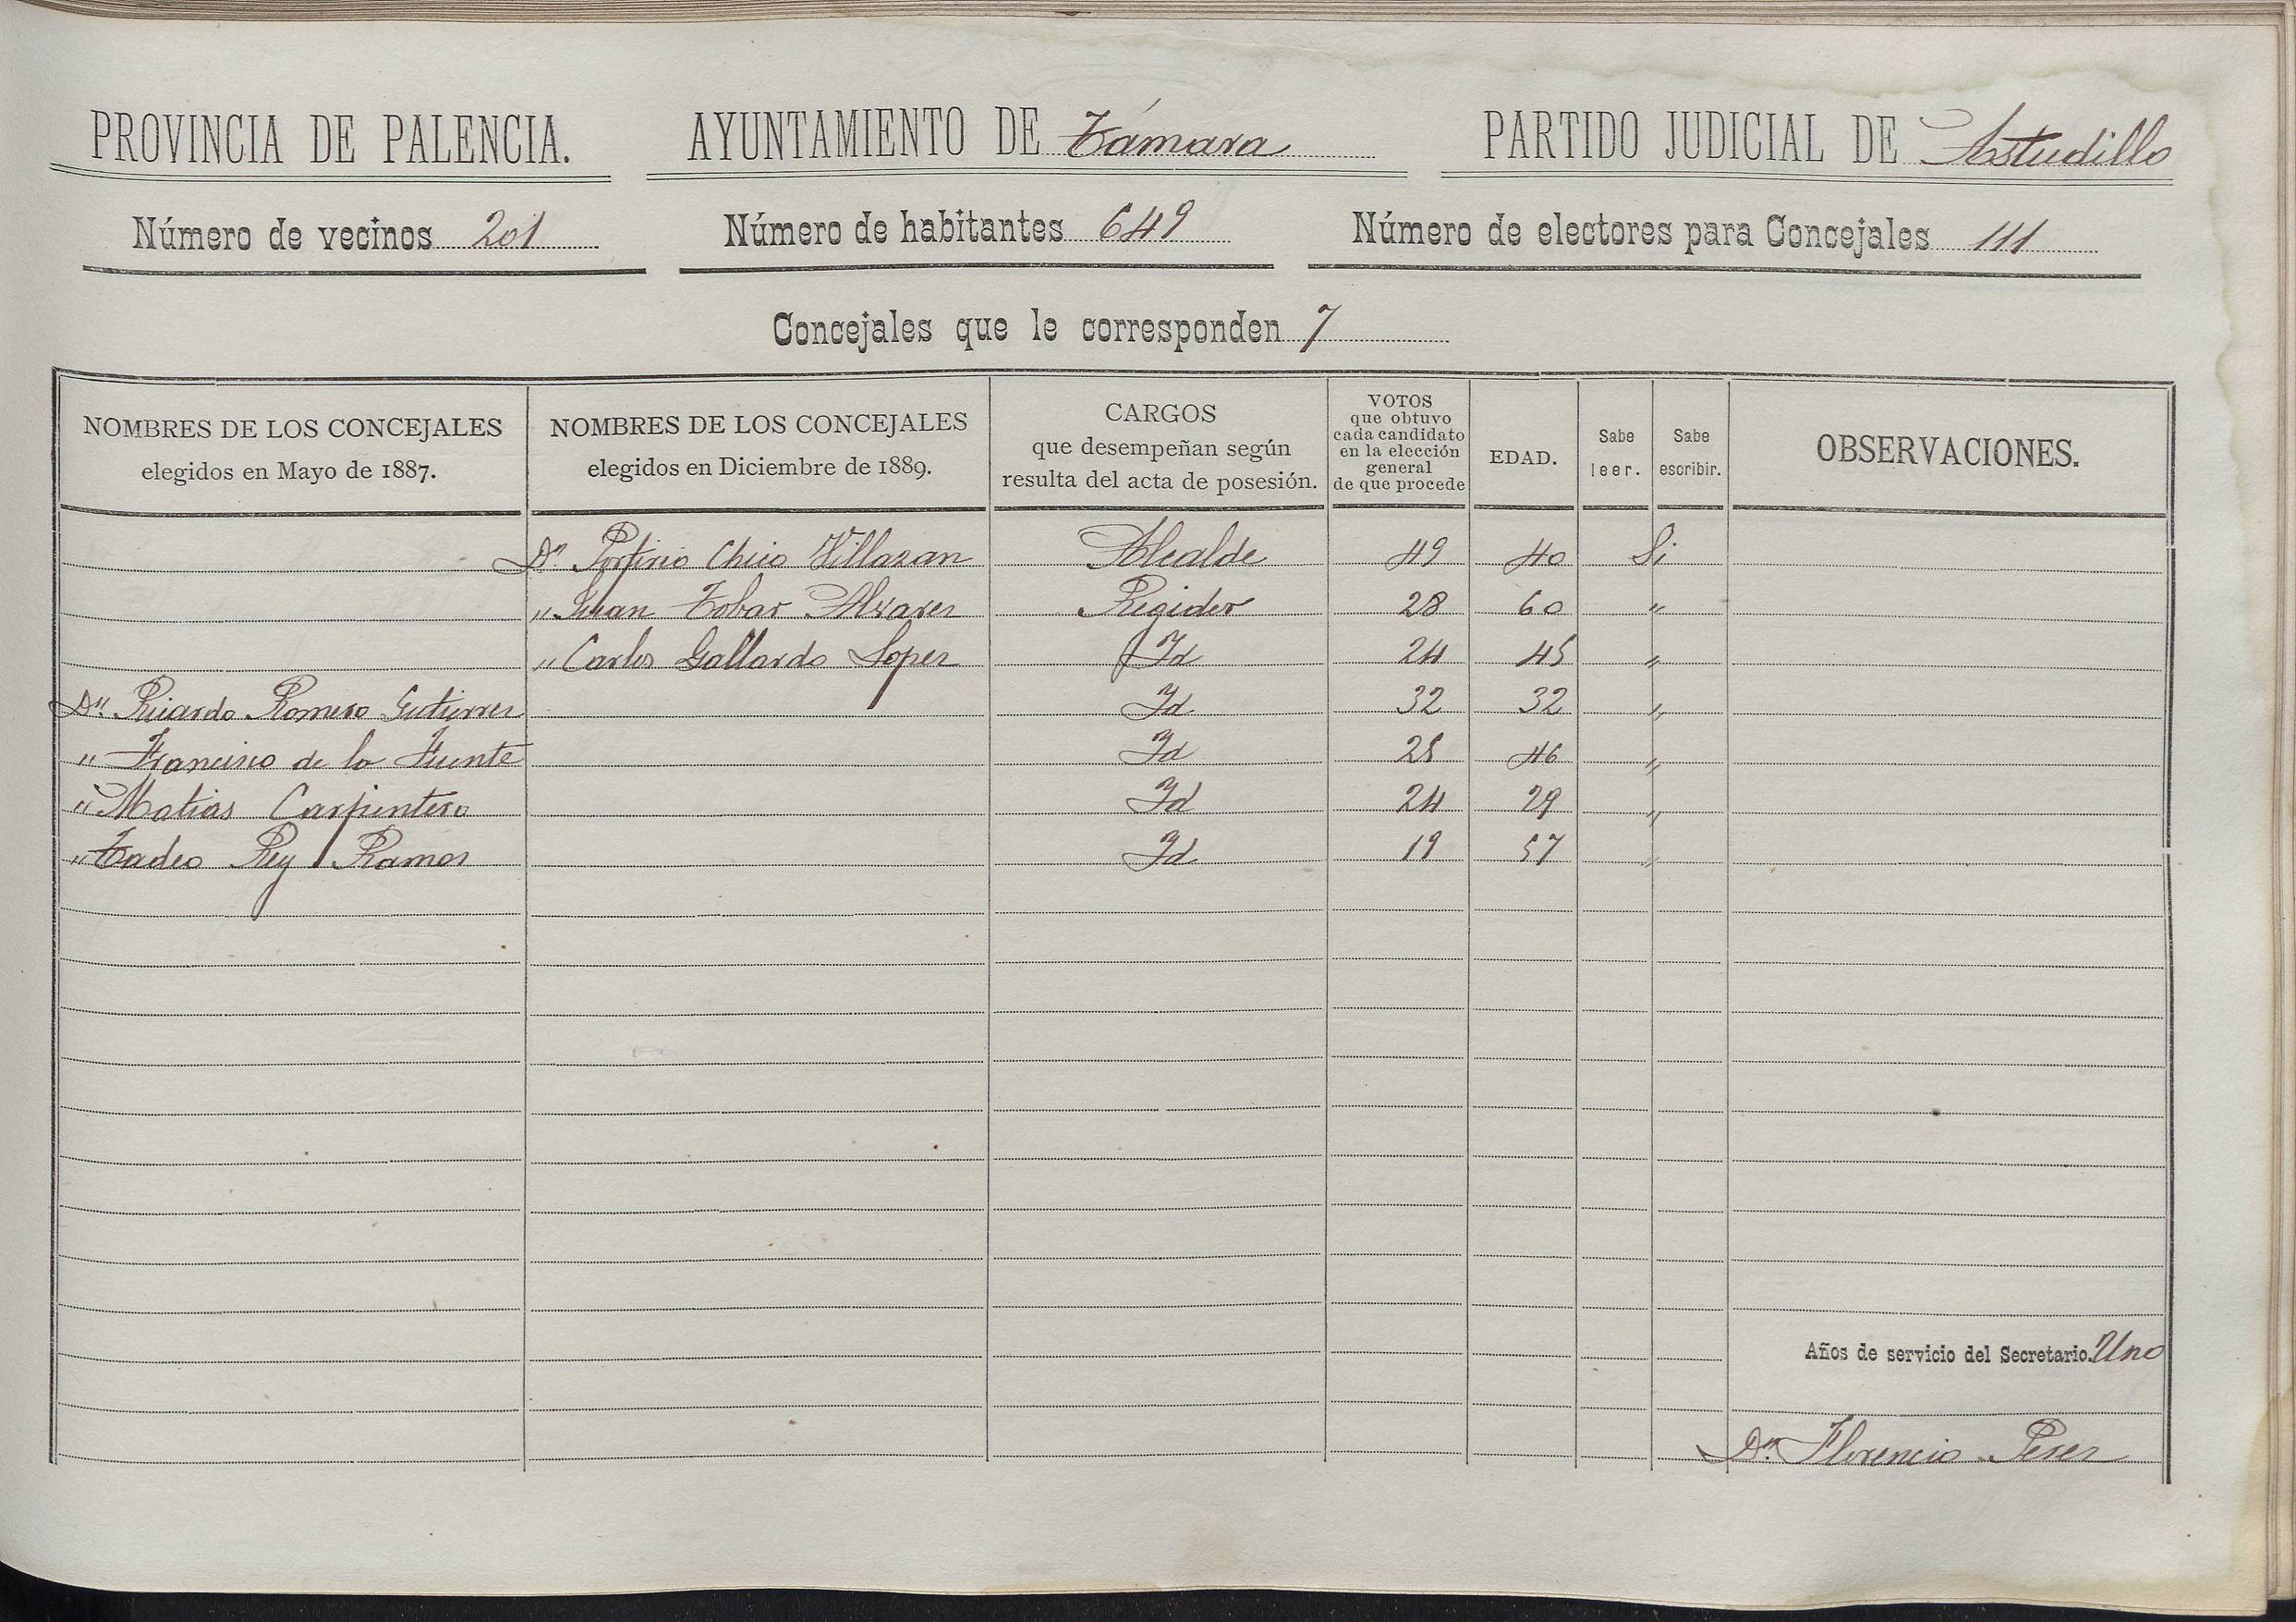 PROVINCIA DE PALENCIA. AYUNTAMIENTO DE Támara PARTIDO JUDICIAL DE Astudillo
Número de vecinos 201 Número de habitantes 649 Número de electores para Concejales 111
Concejales que le corresponden 7
NOMBRES DE LOS CONCEJALES
elegidos en Mayo de 1887.
NOMBRES DE LOS CONCEJALES
elegidos en Diciembre de 1889.
CARGOS
que desempeñan según
resulta del acta de posesión.
VOTOS
que obtuvo
cada candidato
en la elección
general
de que procede
EDAD.
Sabe
leer.
Sabe
escribir.
OBSERVACIONES.
Dn. Porfirio Chico Villazan Alcalde 49 40 Si
" Juan Tobar Alvarez Regidor 28 60 "
" Carlos Gallardo Lopez Id 24 45 "
Dn. Ricardo Romero Gutierrez Id 32 32 "
" Francisco de la Fuente Id 25 46 "
" Matias Carpintero Id 24 29 "
" Tadeo Rey Ramos Id 19 57 "
Años de servicio del Secretario. Uno
Dn. Florencio Perez